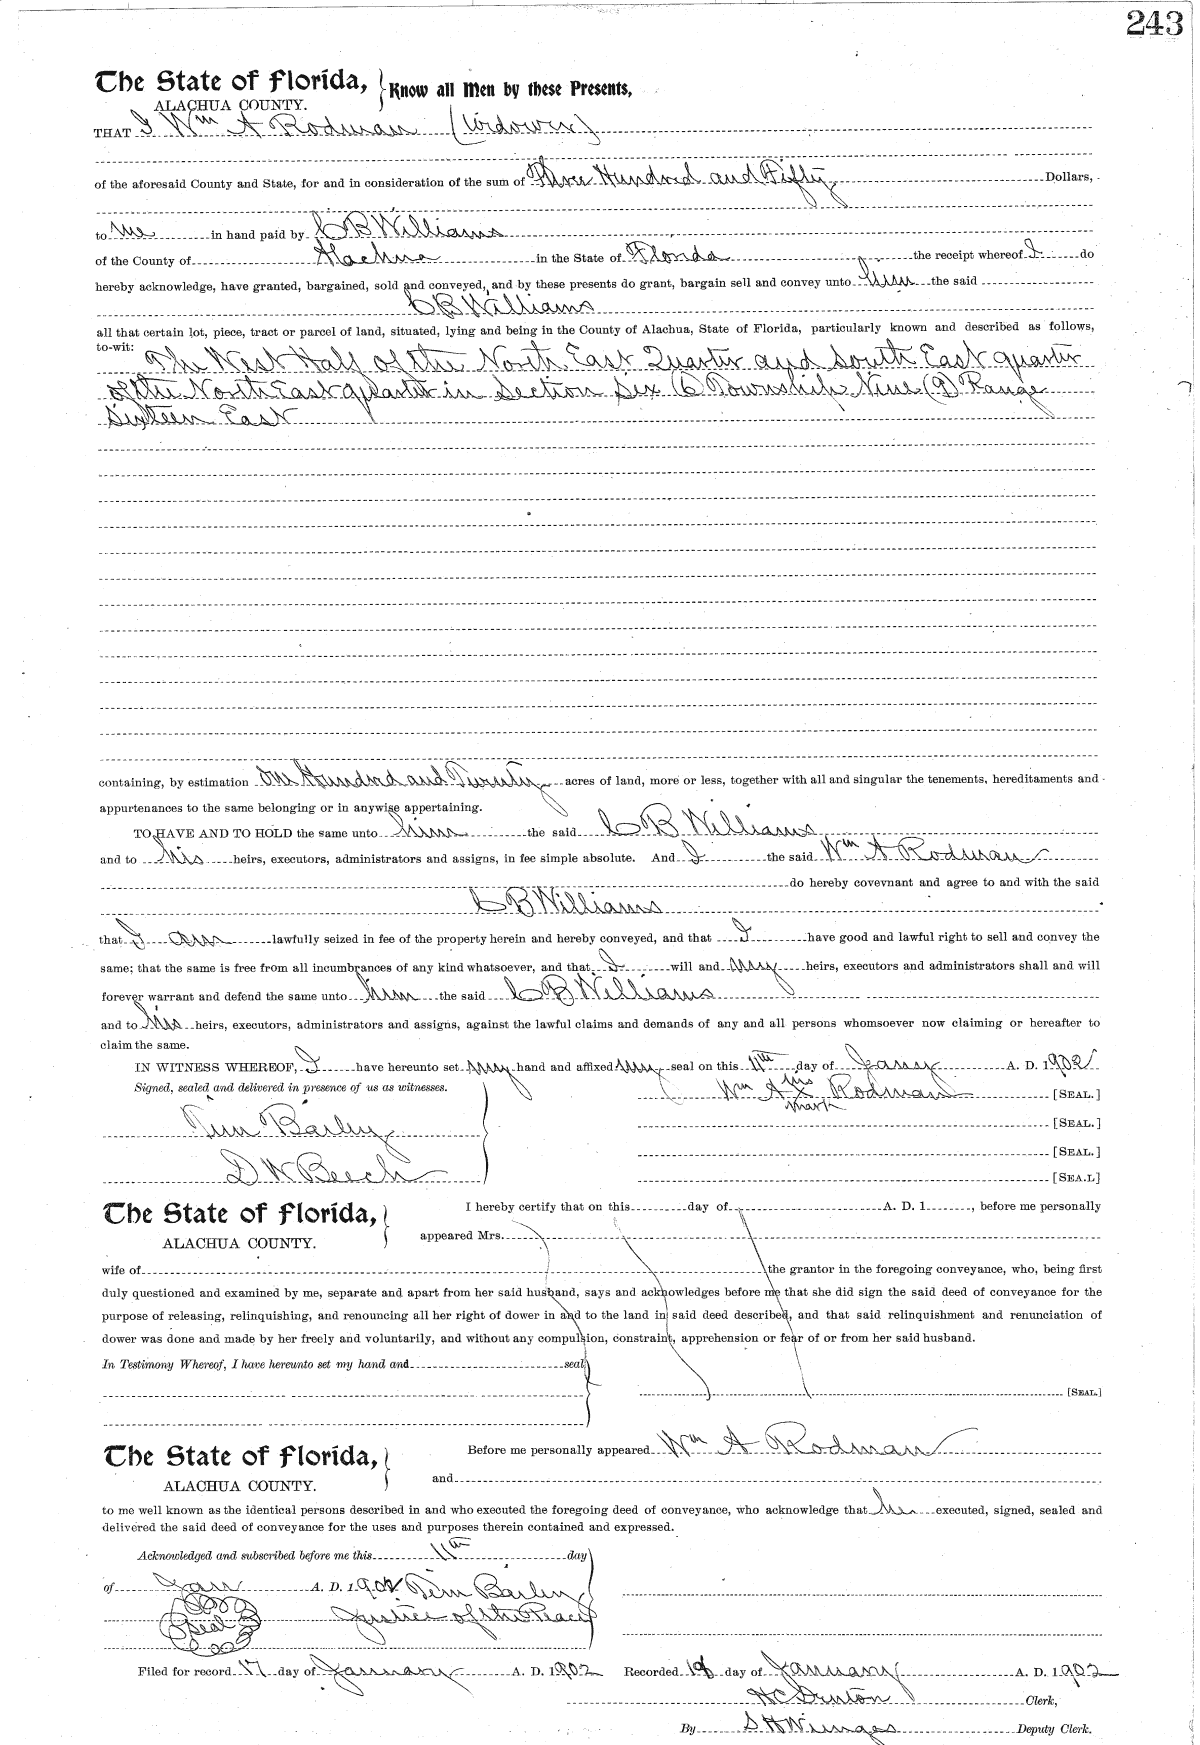 243
The State of Florida, Know all Men by these Presents,
ALACHUA COUNTY.
THAT I Wm A Rodman (Widower)
of the aforesaid County and State, for and in consideration of the sum of Three Hundred and Fifty Dollars,
to me in hand paid by C B Williams
of the County of Alachua in the State of Florida the receipt whereof I do
hereby acknowledge, have granted, bargained, sold and conveyed, and by these presents do grant, bargain sell and convey unto him the said
C B Williams
all that certain lot, piece, tract or parcel of land, situated, lying and being in the County of Alachua, State of Florida, particularly known and described as follows,
to-wit: The West Half of the North East Quarter and South East quarter
of the North East quarter in Section Six (6 Township Nine (9) Range
Sixteen East
containing, by estimation One Hundred and Twenty acres of land, more or less, together with all and singular the tenements, hereditaments and
appurtenances to the same belonging or in anywise appertaining.
TO HAVE AND TO HOLD the same unto him the said C B Williams
and to his heirs, executors, administrators and assigns, in fee simple absolute. And I the said Wm A Rodman
do hereby covevnant and agree to and with the said
C B Williams
that I am lawfully seized in fee of the property herein and hereby conveyed, and that I have good and lawful right to sell and convey the
same; that the same is free from all incumbrances of any kind whatsoever, and that I will and my heirs, executors and administrators shall and will
forever warrant and defend the same unto him the said C B Williams
and to his heirs, executors, administrators and assigns, against the lawful claims and demands of any and all persons whomsoever now claiming or hereafter to
claim the same.
IN WITNESS WHEREOF, I have hereunto set my hand and affixed my seal on this 11th day of Jany A. D. 1902
Signed, sealed and delivered in presence of us as witnesses.
Wm A his x mark Rodman [SEAL.]
Tim Barley [SEAL.]
[SEAL.]
D W Beech [SEA.L]
The State of Florida, I hereby certify that on this day of A. D. 1 , before me personally
ALACHUA COUNTY. appeared Mrs.
wife of the grantor in the foregoing conveyance, who, being first
duly questioned and examined by me, separate and apart from her said husband, says and acknowledges before me that she did sign the said deed of conveyance for the
purpose of releasing, relinquishing, and renouncing all her right of dower in and to the land in said deed described, and that said relinquishment and renunciation of
dower was done and made by her freely and voluntarily, and without any compulsion, constraint, apprehension or fear of or from her said husband.
In Testimony Whereof, I have hereunto set my hand and seal
[SEAL.]
The State of Florida, Before me personally appeared Wm A Rodman
ALACHUA COUNTY. and
to me well known as the identical persons described in and who executed the foregoing deed of conveyance, who acknowledge that he executed, signed, sealed and
delivered the said deed of conveyance for the uses and purposes therein contained and expressed.
Acknowledged and subscribed before me this 11th day
of Jan A. D. 1902 Tim Barley
Seal Justice of the Peace
Filed for record 17 day of January A. D. 1902 Recorded 18 day of January A. D. 1902
H C Denton Clerk,
By S H Wienges Deputy Clerk.